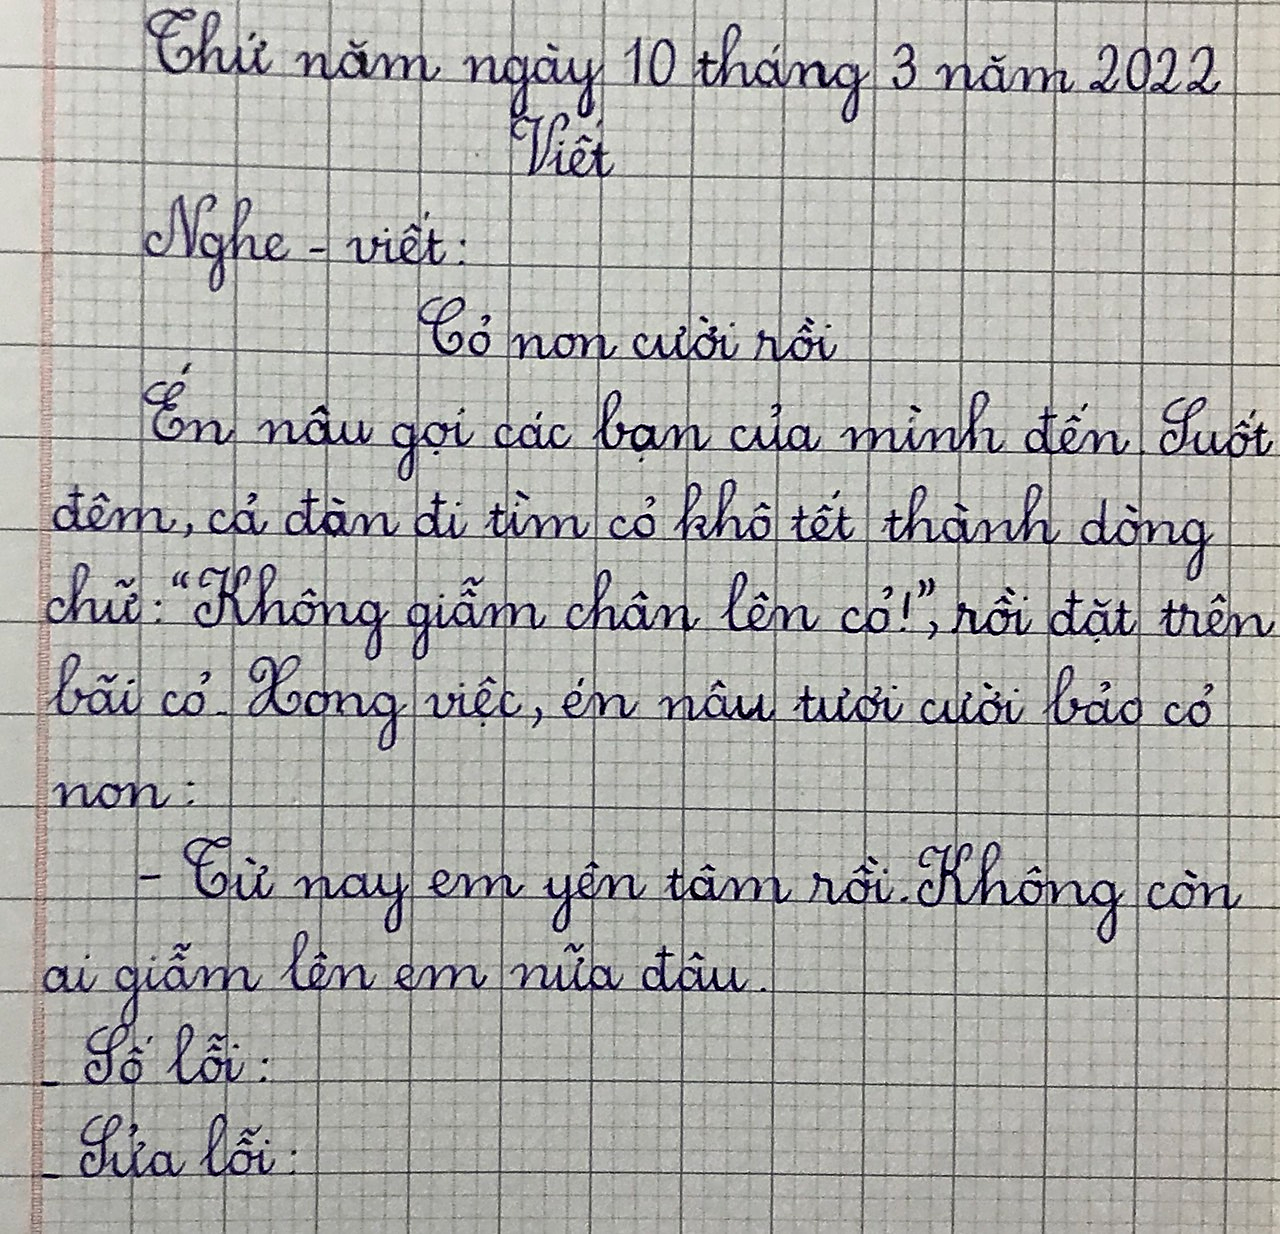 Thứ năm ngày 10 tháng 3 năm 2022
Viết
Nghe - viết:
Cỏ non cười rồi
Én nâu gọi các bạn của mình đến. Suốt
đêm, cả đàn đi tìm cỏ khô tết thành dòng
chữ: “Không giẫm chân lên cỏ!”, rồi đặt trên
bãi cỏ. Xong việc, én nâu tươi cười bảo cỏ
non:
- Từ nay em yên tâm rồi. Không còn
ai giẫm lên em nữa đâu.
- Số lỗi:
- Sửa lỗi: